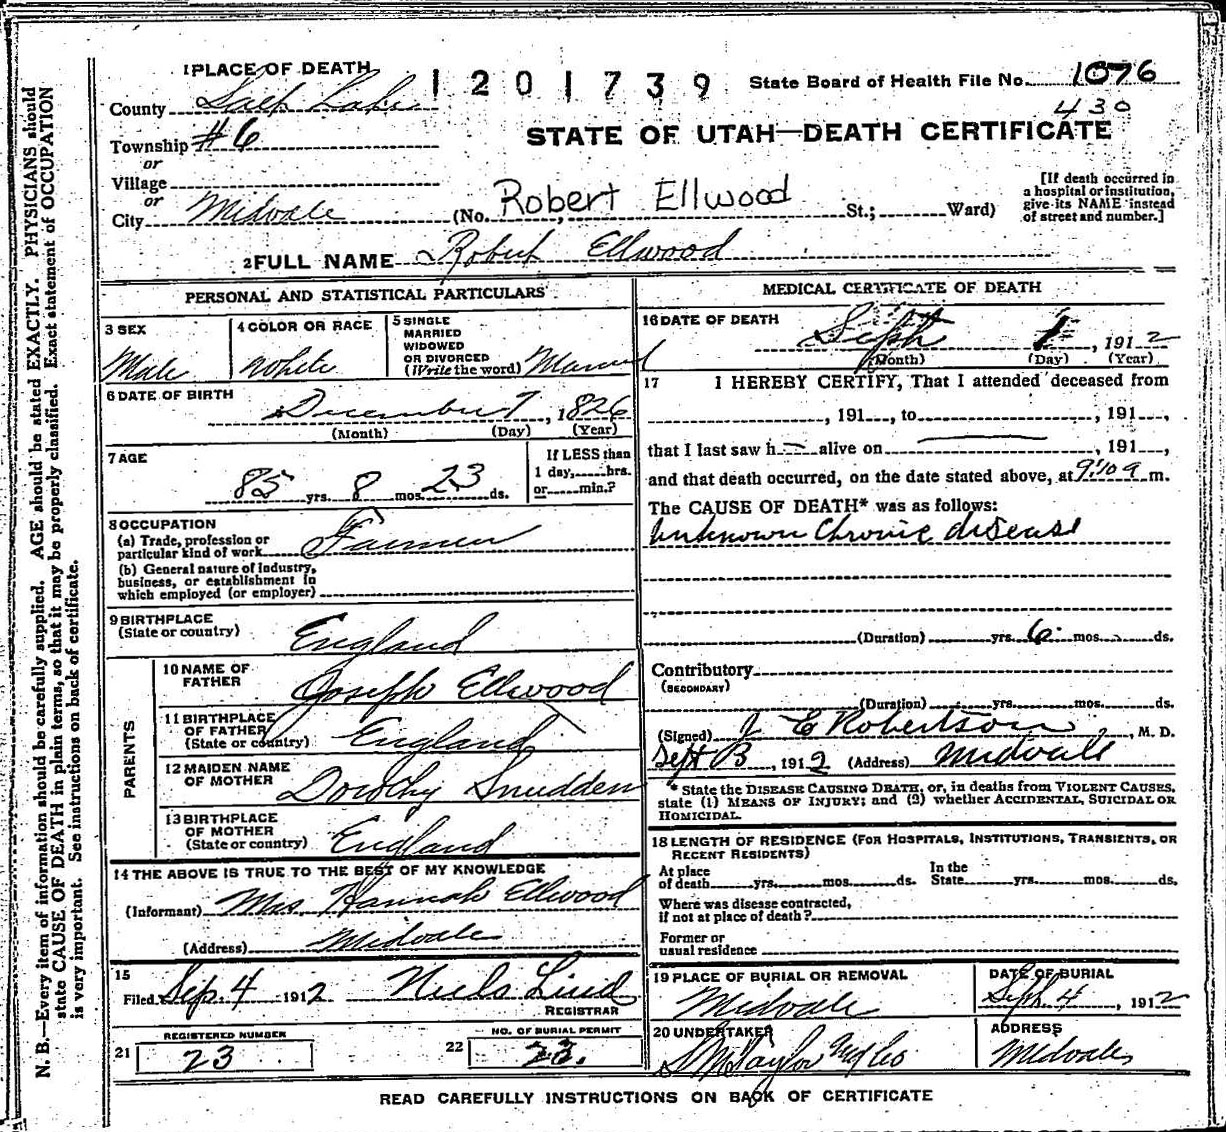 1 PLACE OF DEATH
1201739
State Board of Health File No. 1076
430
County Salt Lake
Township #6
STATE OF UTAH—DEATH CERTIFICATE
or
Village
or
City Midvale (No. Robert Ellwood St.; Ward)
[If death occurred in
a hospital or institution,
give its NAME instead
of street and number.]
2 FULL NAME Robert Ellwood
PERSONAL AND STATISTICAL PARTICULARS
3 SEX
Male
4 COLOR OR RACE
White
5 SINGLE
MARRIED
WIDOWED
OR DIVORCED
(Write the word) Married
6 DATE OF BIRTH
December 7, 1826
(Month) (Day) (Year)
7 AGE
85 yrs. 8 mos. 23 ds.
If LESS than
1 day, hrs.
or min.?
8 OCCUPATION
(a) Trade, profession or
particular kind of work Farmer
(b) General nature of industry,
business, or establishment in
which employed (or employer)
9 BIRTHPLACE
(State or country) England
PARENTS
10 NAME OF
FATHER Joseph Ellwood
11 BIRTHPLACE
OF FATHER
(State or country) England
12 MAIDEN NAME
OF MOTHER Dorothy Snudden
13 BIRTHPLACE
OF MOTHER
(State or country) England
14 THE ABOVE IS TRUE TO THE BEST OF MY KNOWLEDGE
(Informant) Mrs Hannah Ellwood
(Address) Midvale
15
Filed Sep. 4 1912 Niels Lind
REGISTRAR
REGISTERED NUMBER
21 23
NO. OF BURIAL PERMIT
22 23.
MEDICAL CERTIFICATE OF DEATH
16 DATE OF DEATH
Sept 1, 1912
(Month) (Day) (Year)
17 I HEREBY CERTIFY, That I attended deceased from
, 191 , to , 191 ,
that I last saw h alive on , 191 ,
and that death occurred, on the date stated above, at 9:10 a m.
The CAUSE OF DEATH* was as follows:
Unknown Chronic disease
(Duration) yrs. 6 mos. ds.
Contributory
(SECONDARY)
(Duration) yrs. mos. ds.
(Signed) J E Robertson, M. D.
Sept 3, 1912 (Address) Midvale
* State the DISEASE CAUSING DEATH, or, in deaths from VIOLENT CAUSES,
state (1) MEANS OF INJURY; and (2) whether ACCIDENTAL, SUICIDAL OR
HOMICIDAL.
18 LENGTH OF RESIDENCE (FOR HOSPITALS, INSTITUTIONS, TRANSIENTS, OR
RECENT RESIDENTS)
At place
of death yrs. mos. ds.
In the
State yrs. mos. ds.
Where was disease contracted,
if not at place of death?
Former or
usual residence
19 PLACE OF BURIAL OR REMOVAL
Midvale
DATE OF BURIAL
Sept. 4, 1912
20 UNDERTAKER
Taylor Co
ADDRESS
Midvale
READ CAREFULLY INSTRUCTIONS ON BACK OF CERTIFICATE
N. B.—Every item of information should be carefully supplied. AGE should be stated EXACTLY. PHYSICIANS should
state CAUSE OF DEATH in plain terms, so that it may be properly classified. Exact statement of OCCUPATION
is very important. See instructions on back of certificate.